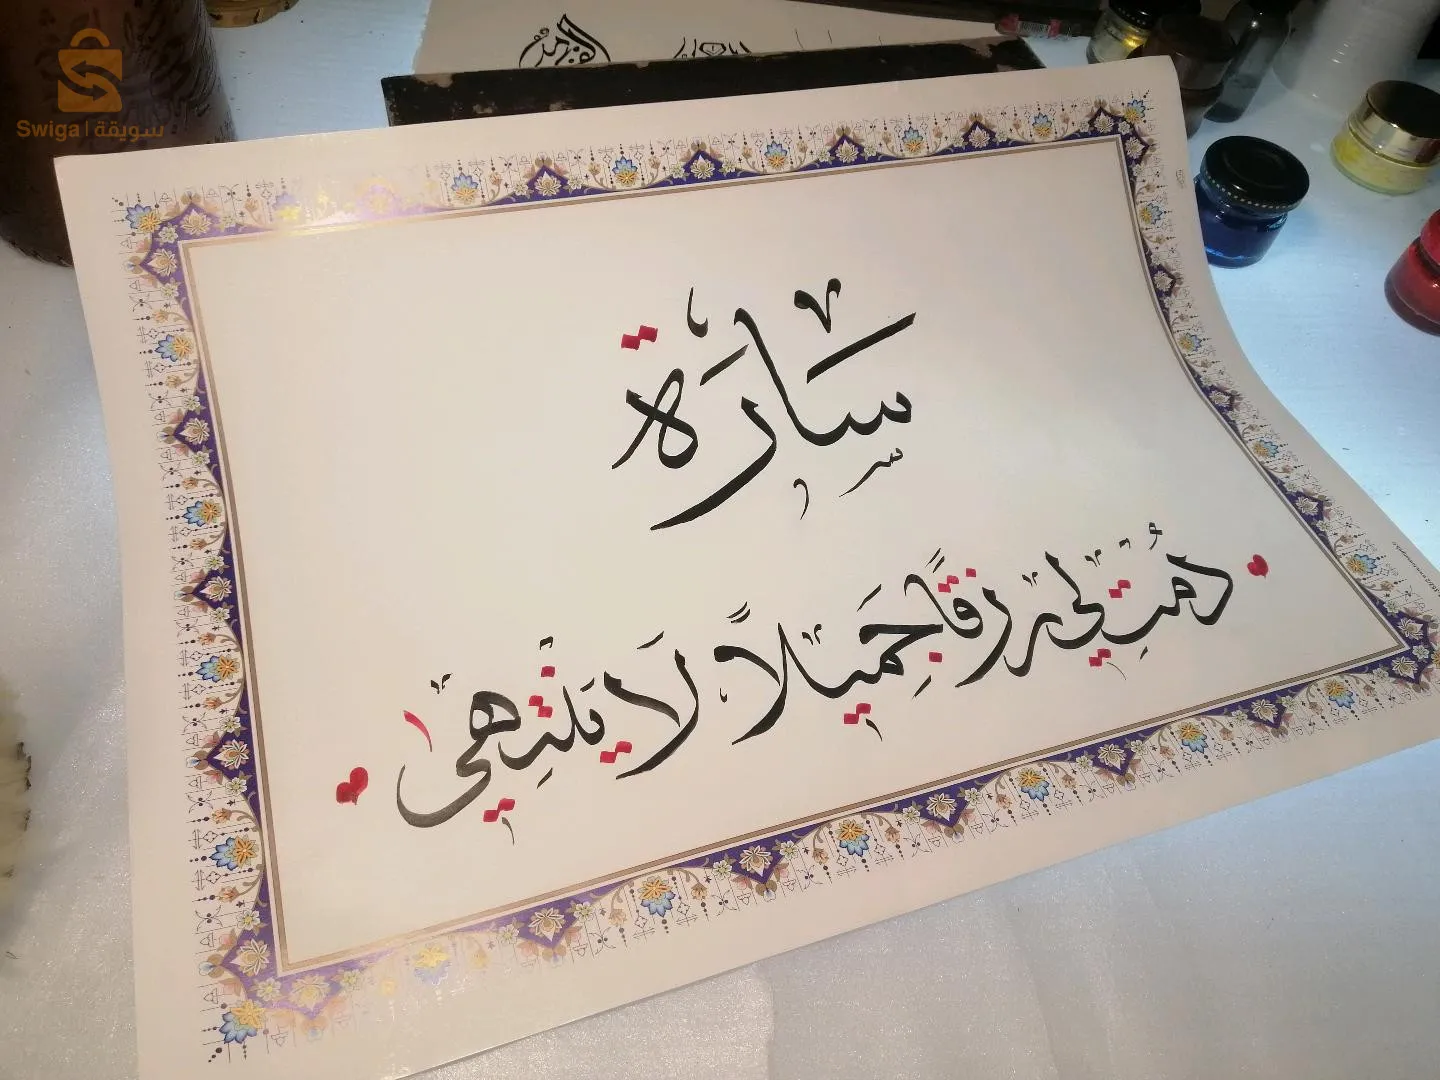 Swiga | سويقة
سَارَة
دُمتِ لي رزقًا جَميلاً لَا يَنْتَهِي